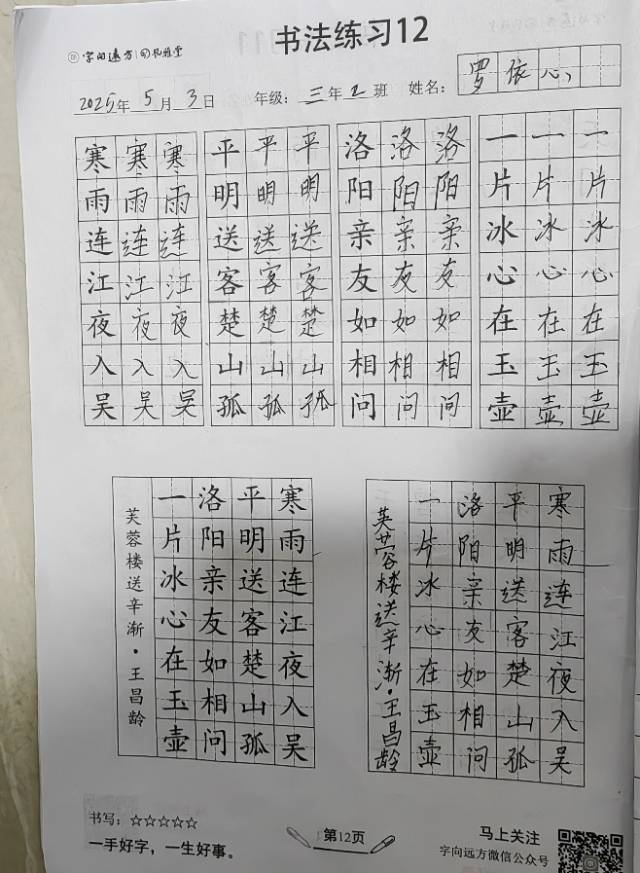 字向远方
书法练习12
2025年5月3日 年级：三年2班 姓名：罗依心
寒寒寒 平平平 洛洛洛 一一一
雨雨雨 明明明 阳阳阳 片片片
连连连 送送送 亲亲亲 冰冰冰
江江江 客客客 友友友 心心心
夜夜夜 楚楚楚 如如如 在在在
入入入 山山山 相相相 玉玉玉
吴吴吴 孤孤孤 问问问 壶壶壶
寒雨连江夜入吴
平明送客楚山孤
洛阳亲友如相问
一片冰心在玉壶
芙蓉楼送辛渐·王昌龄
寒雨连江夜入吴
平明送客楚山孤
洛阳亲友如相问
一片冰心在玉壶
芙蓉楼送辛渐·王昌龄
书写：☆☆☆☆☆
一手好字，一生好事。
第12页
马上关注
字向远方微信公众号